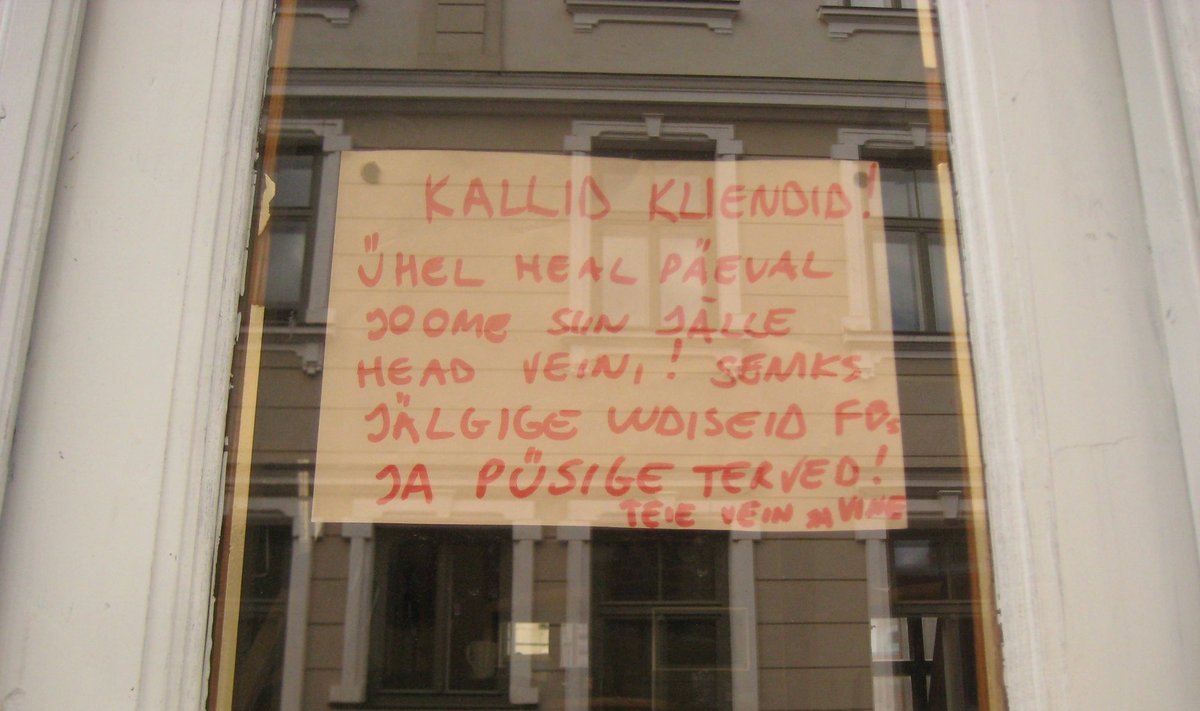 KALLID KLIENDID!
ÜHEL HEAL PÄEVAL
JOOME SIIN JÄLLE
HEAD VEINI! SENIKS
JÄLGIGE UUDISEID FBs
JA PÜSIGE TERVED!
TEIE VEIN JA VINE